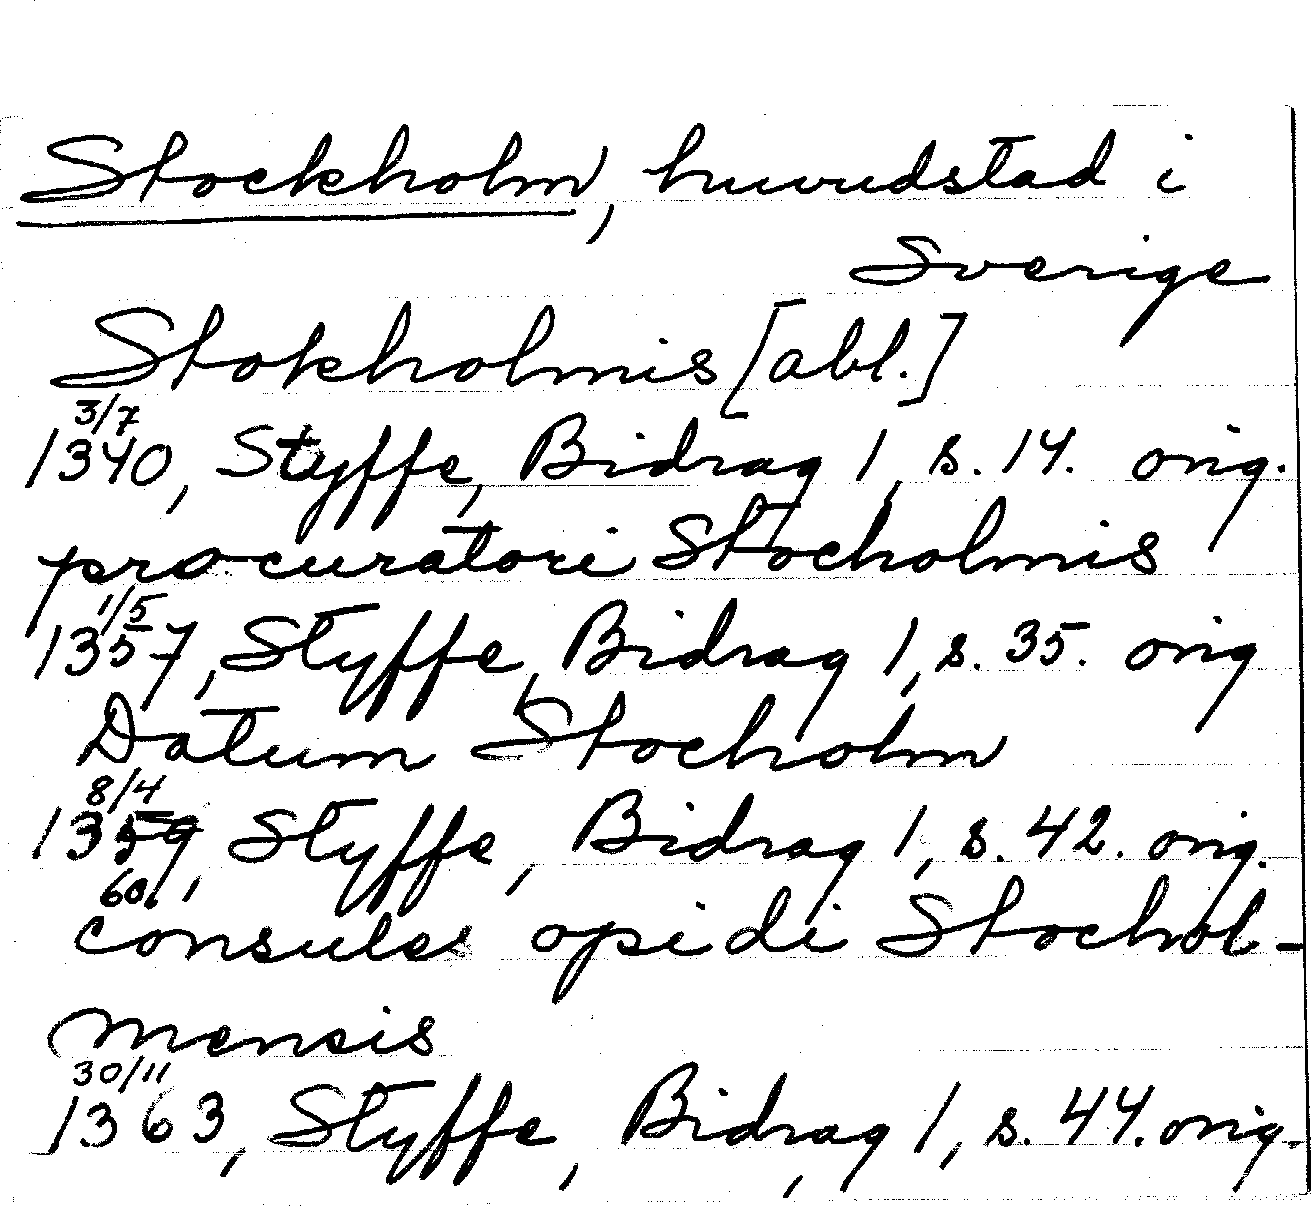 Stockholm, huvudstad i
Sverige
Stokholmis [abl.]
3/7
1340, Styffe, Bidrag 1, s. 14. orig.
procuratori Stocholmis
1/5
1357, Styffe, Bidrag 1, s. 35. orig
Datum Stocholm
8/4
1359, Styffe, Bidrag 1, s. 42. orig.
60.
consules opidi Stochol-
mensis
30/11
1363, Styffe, Bidrag 1, s. 44. orig.